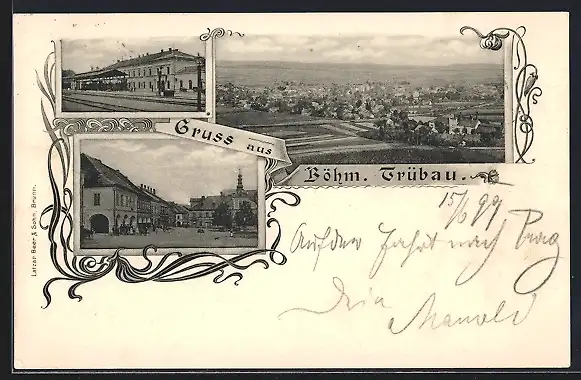 Gruss aus
Böhm. Trübau.
15/6 99
Auf der Fahrt nach Prag
Dein
Latzar Beer & Sohn, Brünn.